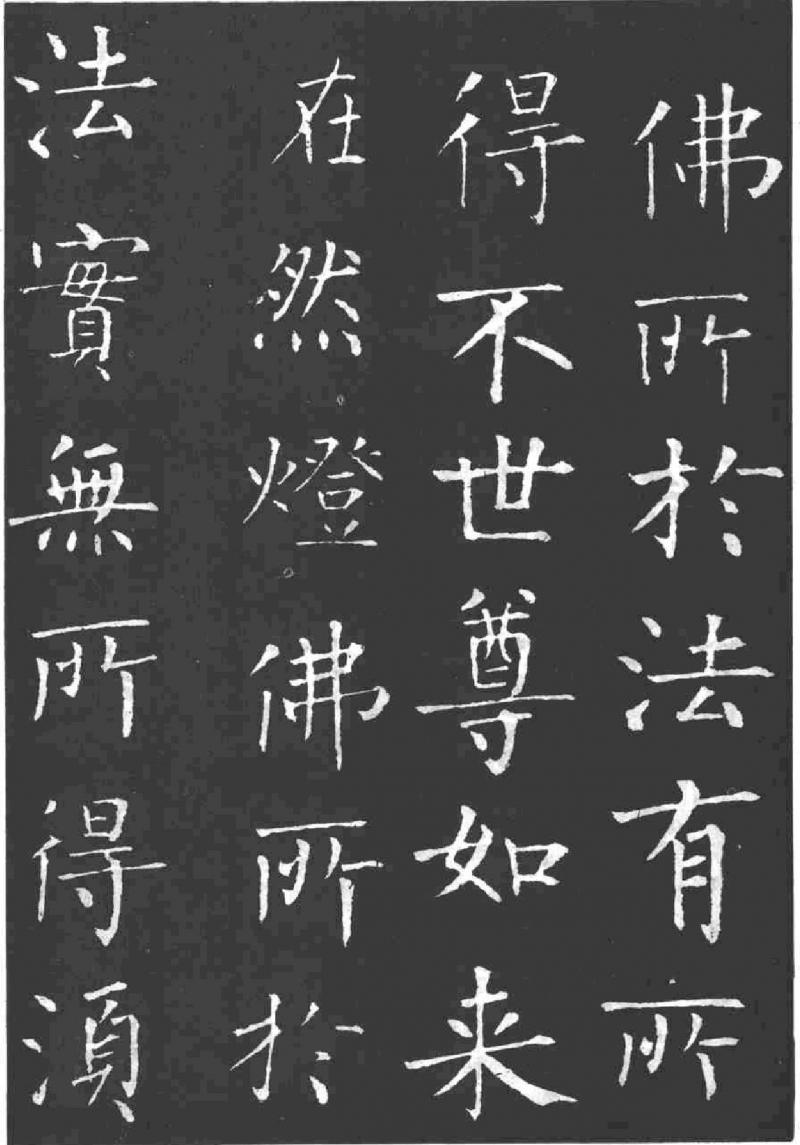 佛所於法有所
得不世尊如来
在然燈佛所於
法實無所得湏